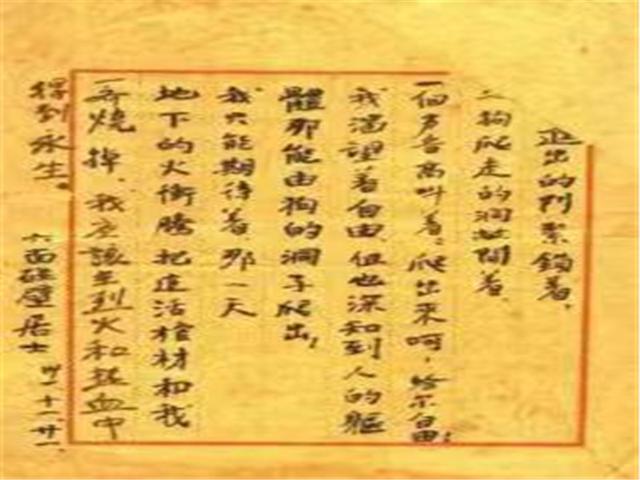 出的门紧锁着、
狗爬走的洞敞開着、
一個声音高叫着：爬出来呵，给尔自由！
我渴望着自由，但也深知到人的軀
體那能由狗的洞子爬出！
我只能期待着，那一天
地下的火衝騰把這活棺材和我
一齐燒掉，我应該在烈火和热血中
得到永生。
六面碰壁居士 卅一·十一·廿一